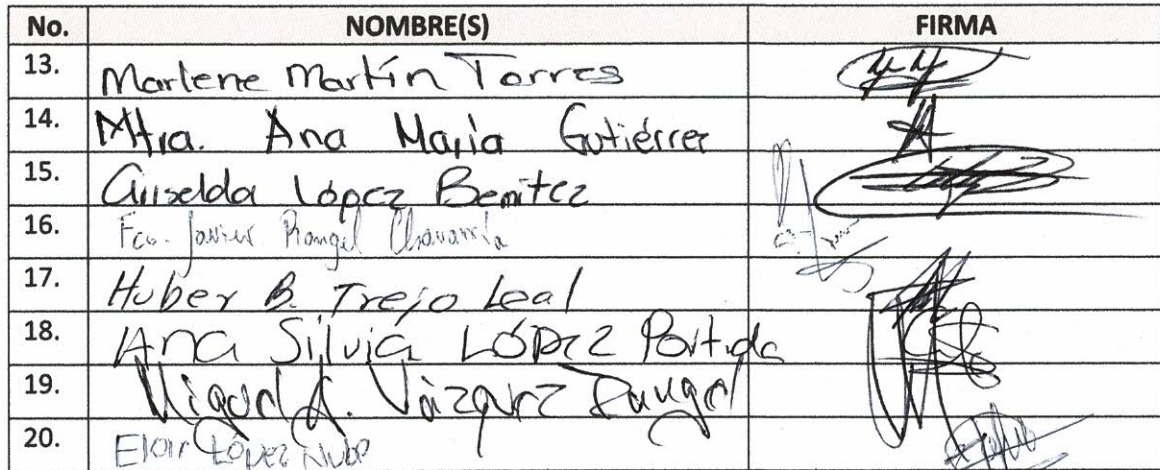 No. NOMBRE(S) FIRMA
13. Marlene Martín Torres
14. Mtra. Ana María Gutiérrez
15. Griselda López Benítez
16. Fco. Javier Rangel Chavarría
17. Huber B. Trejo Leal
18. Ana Silvia López Partida
19. Miguel A. Vázquez Rangel
20. López